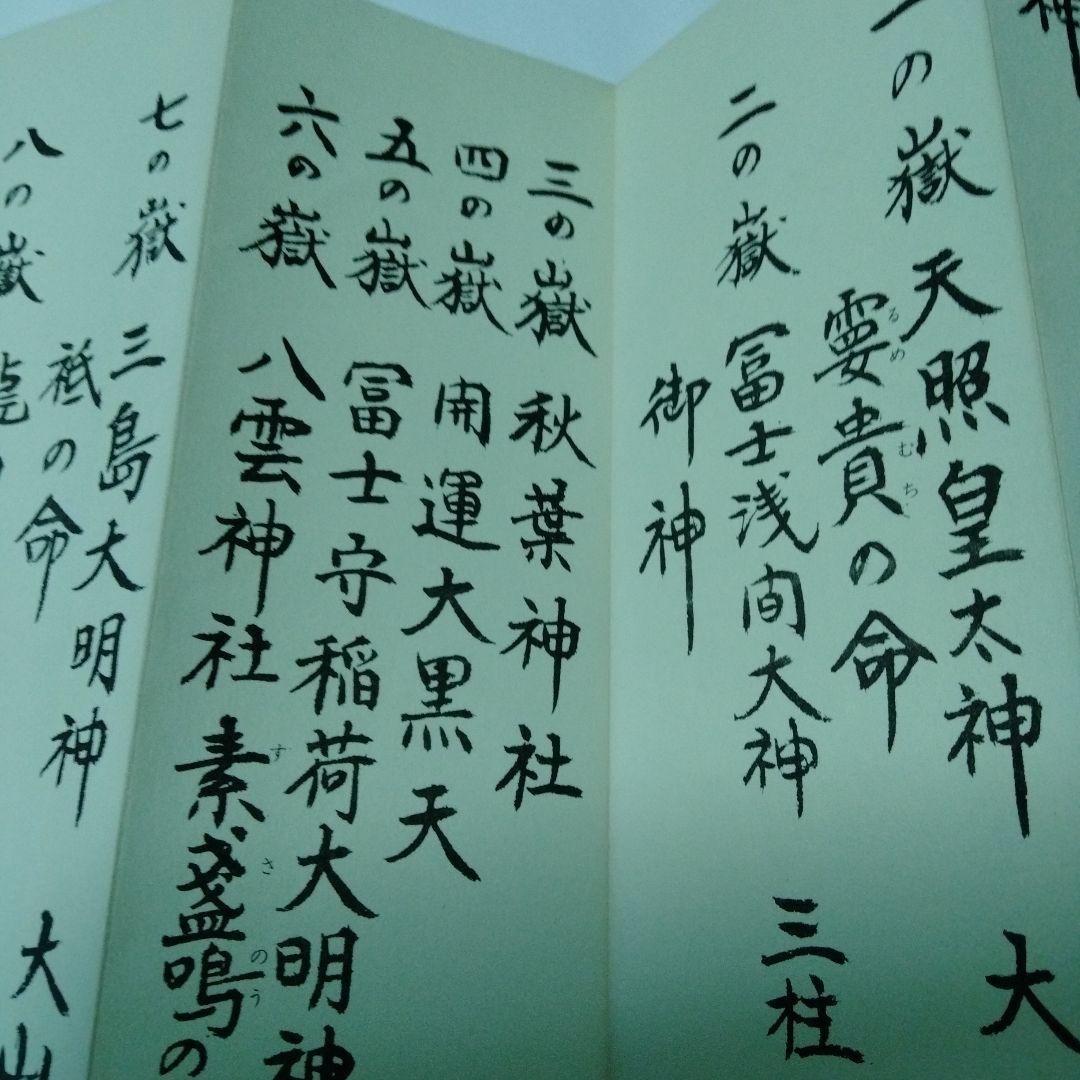 神
一の嶽 天照皇太神 大
霎貴の命
るめむち
二の嶽 冨士浅間大神 三柱
御神
三の嶽 秋葉神社
四の嶽 開運大黒天
五の嶽 冨士守稲荷大明神
六の嶽 八雲神社 素盞鳴の
すさのう
七の嶽 三島大明神 大山
祗の命
八の嶽